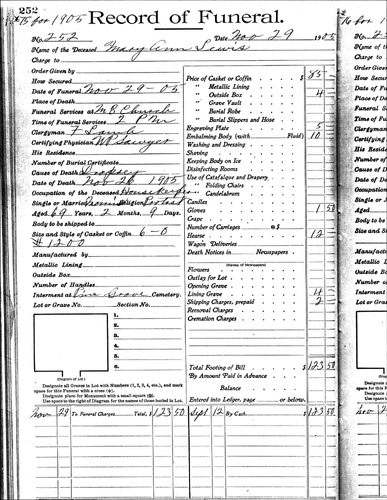 252
75 for 1905
Record of Funeral.
No. 252 Date Nov 29 1905
Name of the Deceased Mary Ann Lewis
Charge to
Order Given by
How Secured
Date of Funeral Nov 29 - 05
Place of Death
Funeral Services at M E Church
Time of Funeral Services 2 P M
Clergyman F Lamb
Certifying Physician W R Sawyer
His Residence
Number of Burial Certificate
Cause of Death Dropsey
Date of Death Nov 26 1905
Occupation of the Deceased Housekeeper
Single or Married Religion Protest
Aged 69 Years, 2 Months, 9 Days.
Body to be shipped to
Size and Style of Casket or Coffin 6-0
# 1200
Manufactured by
Metallic Lining
Outside Box
Number of Handles
Interment at Pine Grove Cemetery.
Lot or Grave No. Section No.
1.
2.
3.
4.
5.
6.
(Diagram of Lot.)
Designate all Graves in Lot with Numbers (1, 2, 3, 4, etc.), and mark
space for this Funeral with a cross (+).
Designate place for Monument with a small square (□).
Use space to the right of Diagram for the names of those buried in Lot.
Price of Casket or Coffin $ 85
" Metallic Lining
" Outside Box 4
" Grave Vault
" Burial Robe
" Burial Slippers and Hose
Engraving Plate 5
Embalming Body (with Fluid) 10
Washing and Dressing
Shaving
Keeping Body on Ice
Disinfecting Rooms
Use of Catafalque and Drapery
" Folding Chairs
" Candelabrum
Candles
Gloves 1 50
Crape
Number of Carriages @ $
Hearse 12
Wagon Deliveries
Death Notices in Newspapers
(Names of Newspapers)
Flowers
Outlay for Lot
Opening Grave
Lining Grave 4
Shipping Charges, prepaid 2
Removal Charges
Cremation Charges
Total Footing of Bill $ 123 50
By Amount Paid in Advance
Balance
Entered into Ledger, page or below.
Nov 29 To Funeral Charges Total, $ 123 50 Sept 12 By Cash $ 123 50